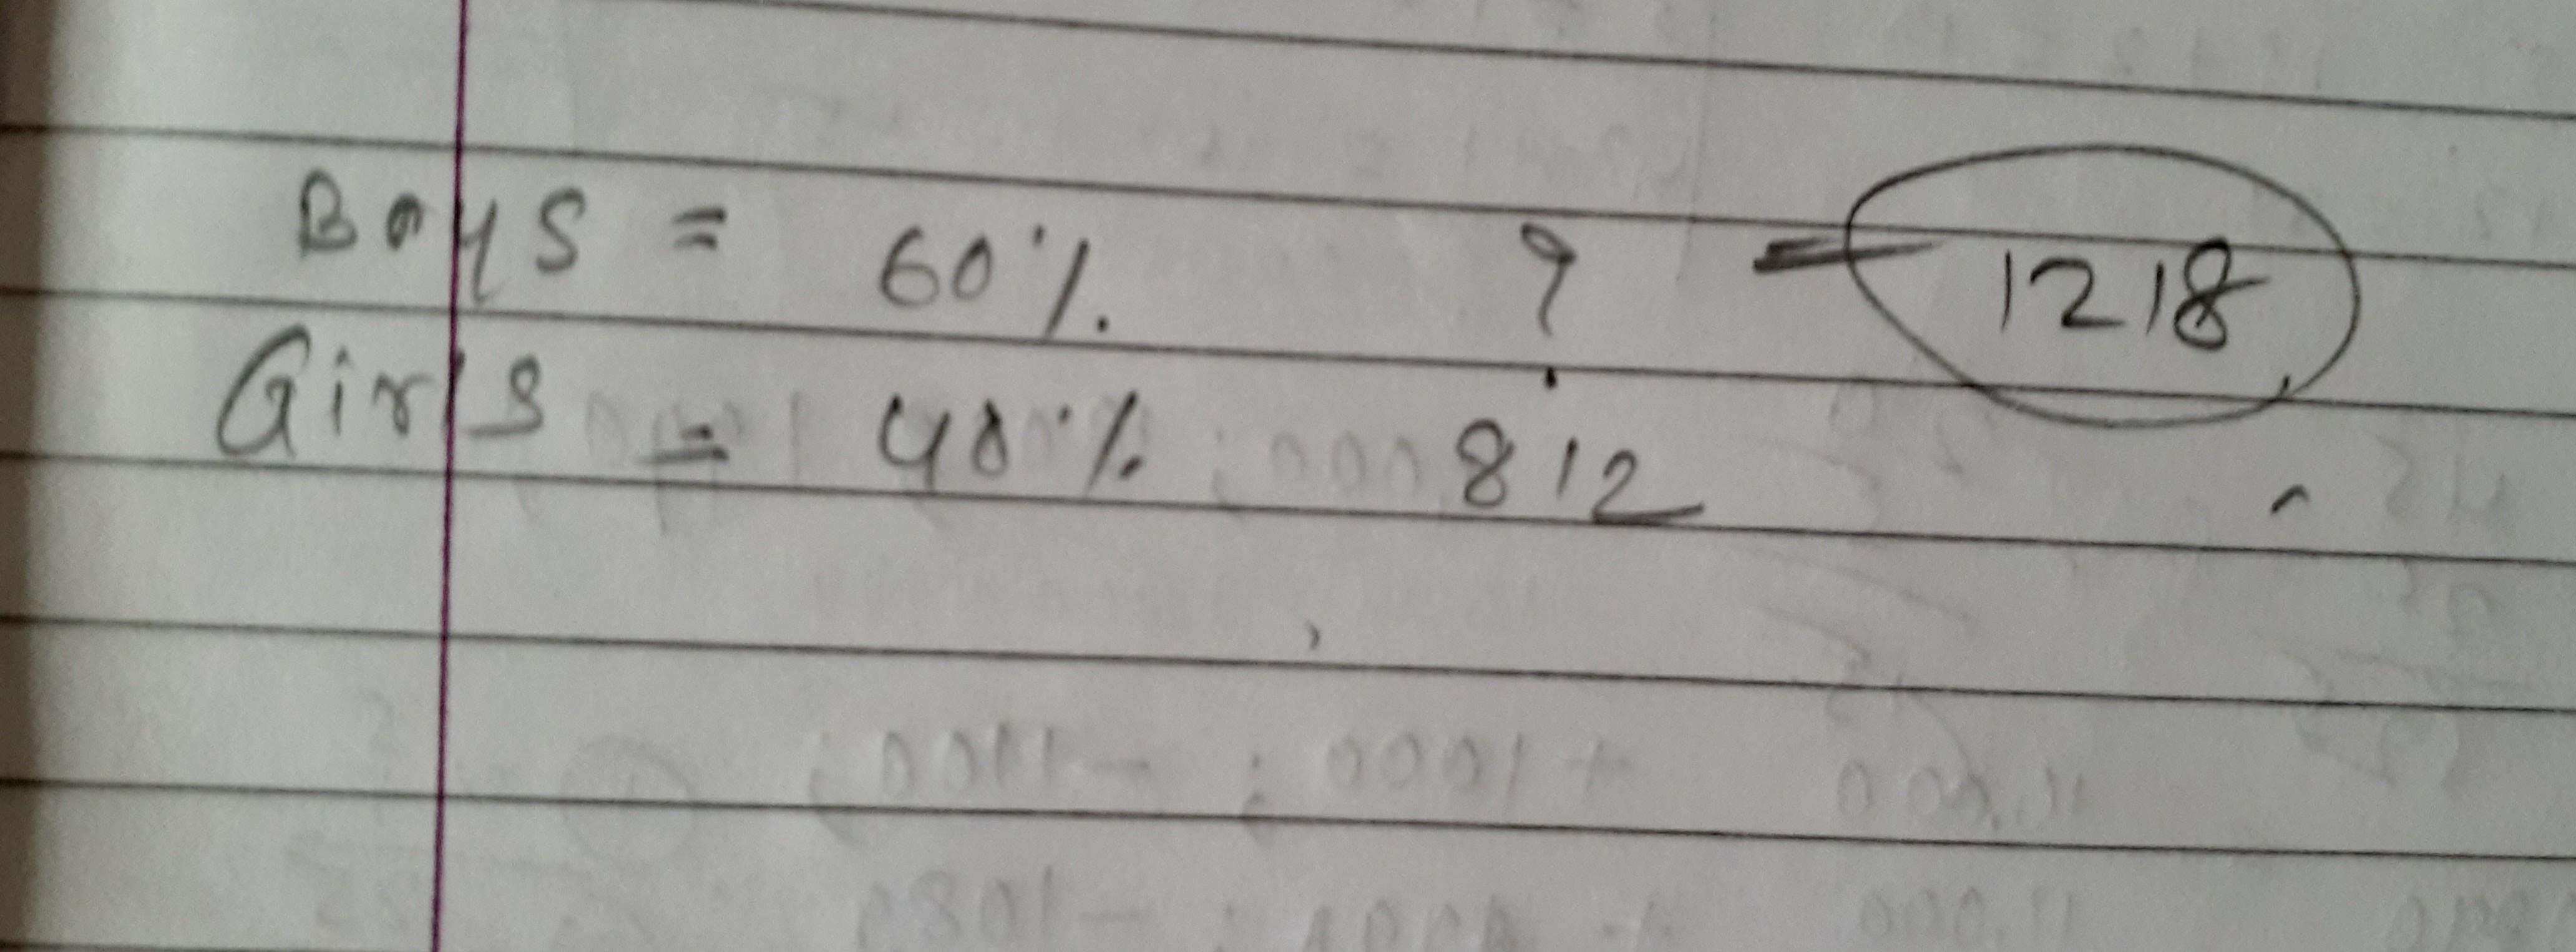 Boys = 60% ? = 1218
Girls = 40% 812